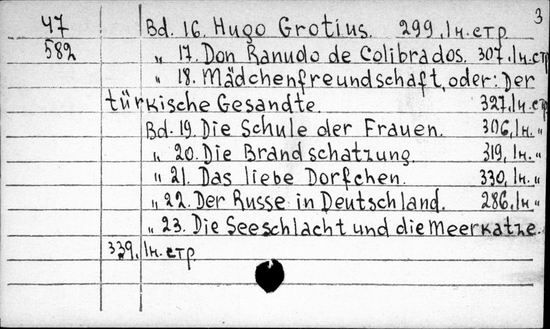 3
47 Bd. 16. Hugo Grotius. 299, 1н. стр
582 „ 17. Don Ranudo de Colibrados. 307, 1н. стр
„ 18. Mädchenfreundschaft, oder: Der
türkische Gesandte. 327, 1н. стр
Bd. 19. Die Schule der Frauen. 306, 1н. „
„ 20. Die Brandschatzung. 319, 1н. „
„ 21. Das liebe Dorfchen. 330, 1н. „
„ 22. Der Russe in Deutschland. 286, 1н. „
„ 23. Die Seeschlacht und die Meerkatze.
339, 1н. стр